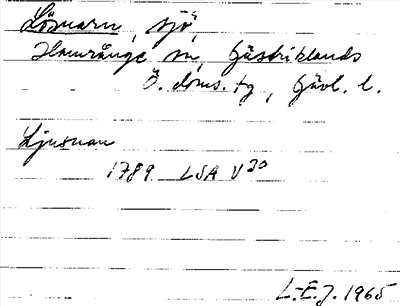 Lösnaren, sjö,
Hamrånge sn, Gästriklands
Ö. doms. tg, Gävl. l.
Ljusnan
1789 LSA V30
L-E.J. 1965